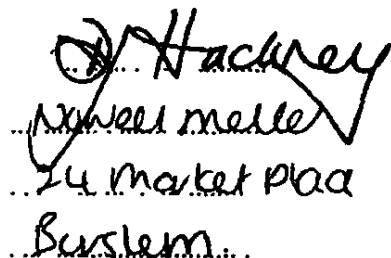 Hackney
Nowell Meller
24 Market Place
Burslem